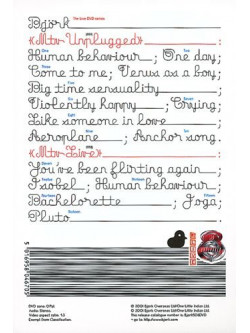 Björk The Live DVD series
«Mtv Unplugged» :
Human behaviour ; One day;
Come to me; Venus as a boy;
Big time sensuality ;
Violently happy ; Crying;
Like someone in love ;
Aeroplane ; Anchor song.
«Mtv Live» :
You've been flirting again;
Isobel ; Human behaviour;
Bachelorette ; Joga;
Pluto
DVD zone: 0/Pal
Audio: Stereo.
Video aspect ratio: 4:3
Exempt from Classification.
© 2001 Björk Overseas Ltd/One Little Indian Ltd.
℗ 2001 Björk Overseas Ltd/One Little Indian Ltd.